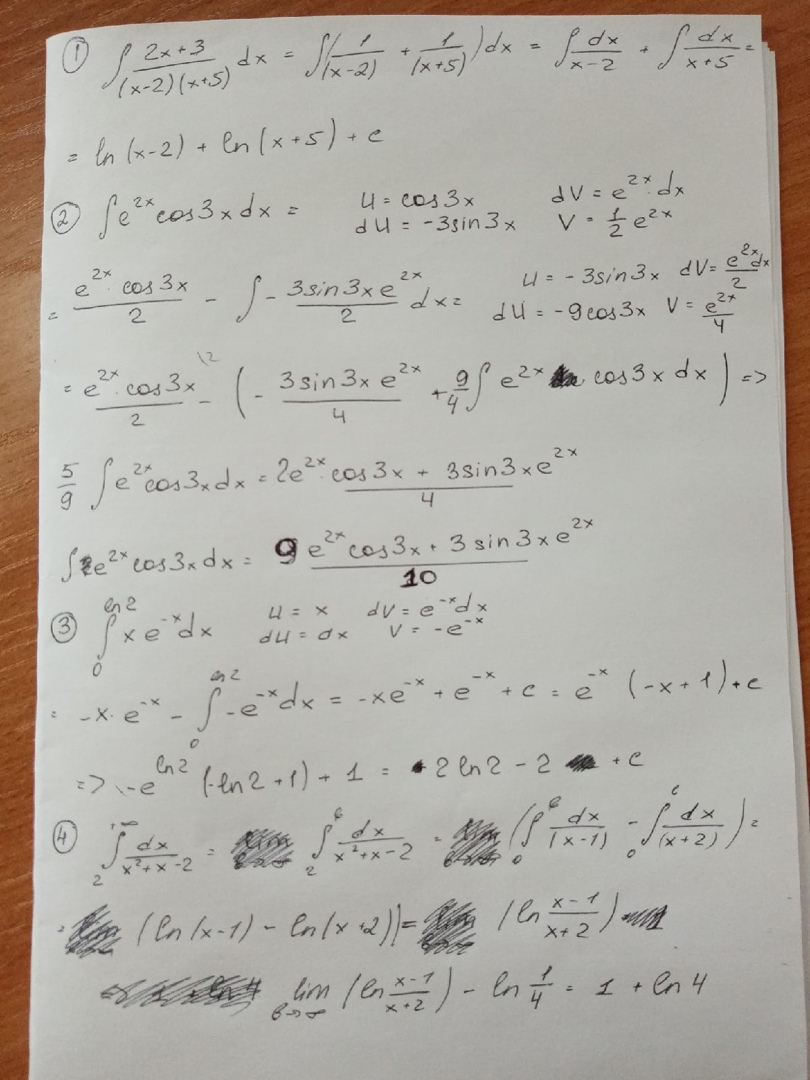 ① ∫ (2x+3)/((x-2)(x+5)) dx = ∫(1/(x-2) + 1/(x+5))dx = ∫ dx/(x-2) + ∫ dx/(x+5) =
= ln(x-2) + ln(x+5) + c
② ∫e^{2x}cos3xdx = u = cos3x dV = e^{2x}·dx
du = -3sin3x V = 1/2 e^{2x}
= (e^{2x}·cos3x)/2 - ∫ - (3sin3xe^{2x})/2 dx = u = -3sin3x dV = (e^{2x}dx)/2
du = -9cos3x V = e^{2x}/4
= (e^{2x}·cos3x)/2 - (- (3sin3xe^{2x})/4 + 9/4 ∫ e^{2x} cos3xdx) =>
5/9 ∫e^{2x}cos3xdx = (2e^{2x}·cos3x + 3sin3xe^{2x})/4
∫e^{2x}cos3xdx = 9 (e^{2x}cos3x + 3sin3xe^{2x})/10
③ ∫_0^{ln2} xe^{-x}dx u = x dV = e^{-x}dx
du = dx V = -e^{-x}
= -x·e^{-x} - ∫_0^{ln2} -e^{-x}dx = -xe^{-x} + e^{-x} + c = e^{-x}(-x+1)+c
=> -e^{ln2}(-ln2+1)+1 = 2ln2-2 +c
④ ∫_2^{+∞} dx/(x²+x-2) = ∫_2^6 dx/(x²+x-2) = (∫_0^6 dx/(x-1) - ∫_0^6 dx/(x+2)) =
= (ln(x-1) - ln(x+2)) = (ln (x-1)/(x+2))
lim_{b→∞} (ln (x-1)/(x+2)) - ln 1/4 = 1 + ln4